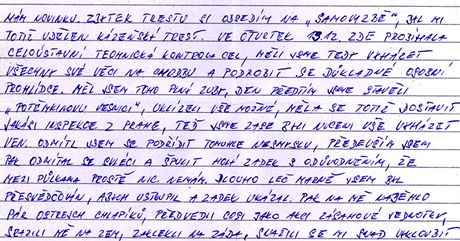 MÁM NOVINKU. ZBYTEK TRESTU SI ODSEDÍM NA „SAMOVAZBĚ", BYL MI
TOTIŽ UDĚLEN KÁZEŇSKÝ TREST. VE ČTVRTEK 19.12. ZDE PROBÍHALA
CELOÚSTAVNÍ TECHNICKÁ KONTROLA CEL, MĚLI JSME TEDY VYHÁZET
VŠECHNY SVÉ VĚCI NA CHODBU A PODROBIT SE DŮKLADNÉ OSOBNÍ
PROHLÍDCE. MĚL JSEM TOHO PLNÝ ZUBY, DEN PŘEDTÍM JSME STAVĚLI
„POTĚMKINOVU VESNICI", UKLÍZELI VŠE MOŽNÉ, MĚLA SE TOTIŽ DOSTAVIT
JAKÁSI INSPEKCE Z PRAHY, TEĎ JSME ZASE BYLI NUCENI VŠE VYHÁZET
VEN. ODMÍTL JSEM SE PODŘÍDIT TOMUHLE NESMYSLU, PŘEDEVŠÍM JSEM
PAK ODMÍTAL SE SVLÉCI A ŠPULIT HOLÝ ZADEK S ODŮVODNĚNÍM, ŽE
MEZI PŮLKAMA PROSTĚ NIC NEMÁM. DLOUHO LEČ MARNĚ JSEM BYL
PŘESVĚDČOVÁN, ABYCH USTOUPIL A ZADEK UKÁZAL. PAK NA MĚ NABĚHLO
PÁR OSTRÝCH CHLAPÍKŮ, PŘEDVEDLI COSI JAKO AKCI ZÁSAHOVÉ JEDNOTKY,
SRAZILI MĚ NA ZEM, ZAKLEKLI NA ZÁDA, SNAŽILI SE MI SNAD VYKLOUBIT